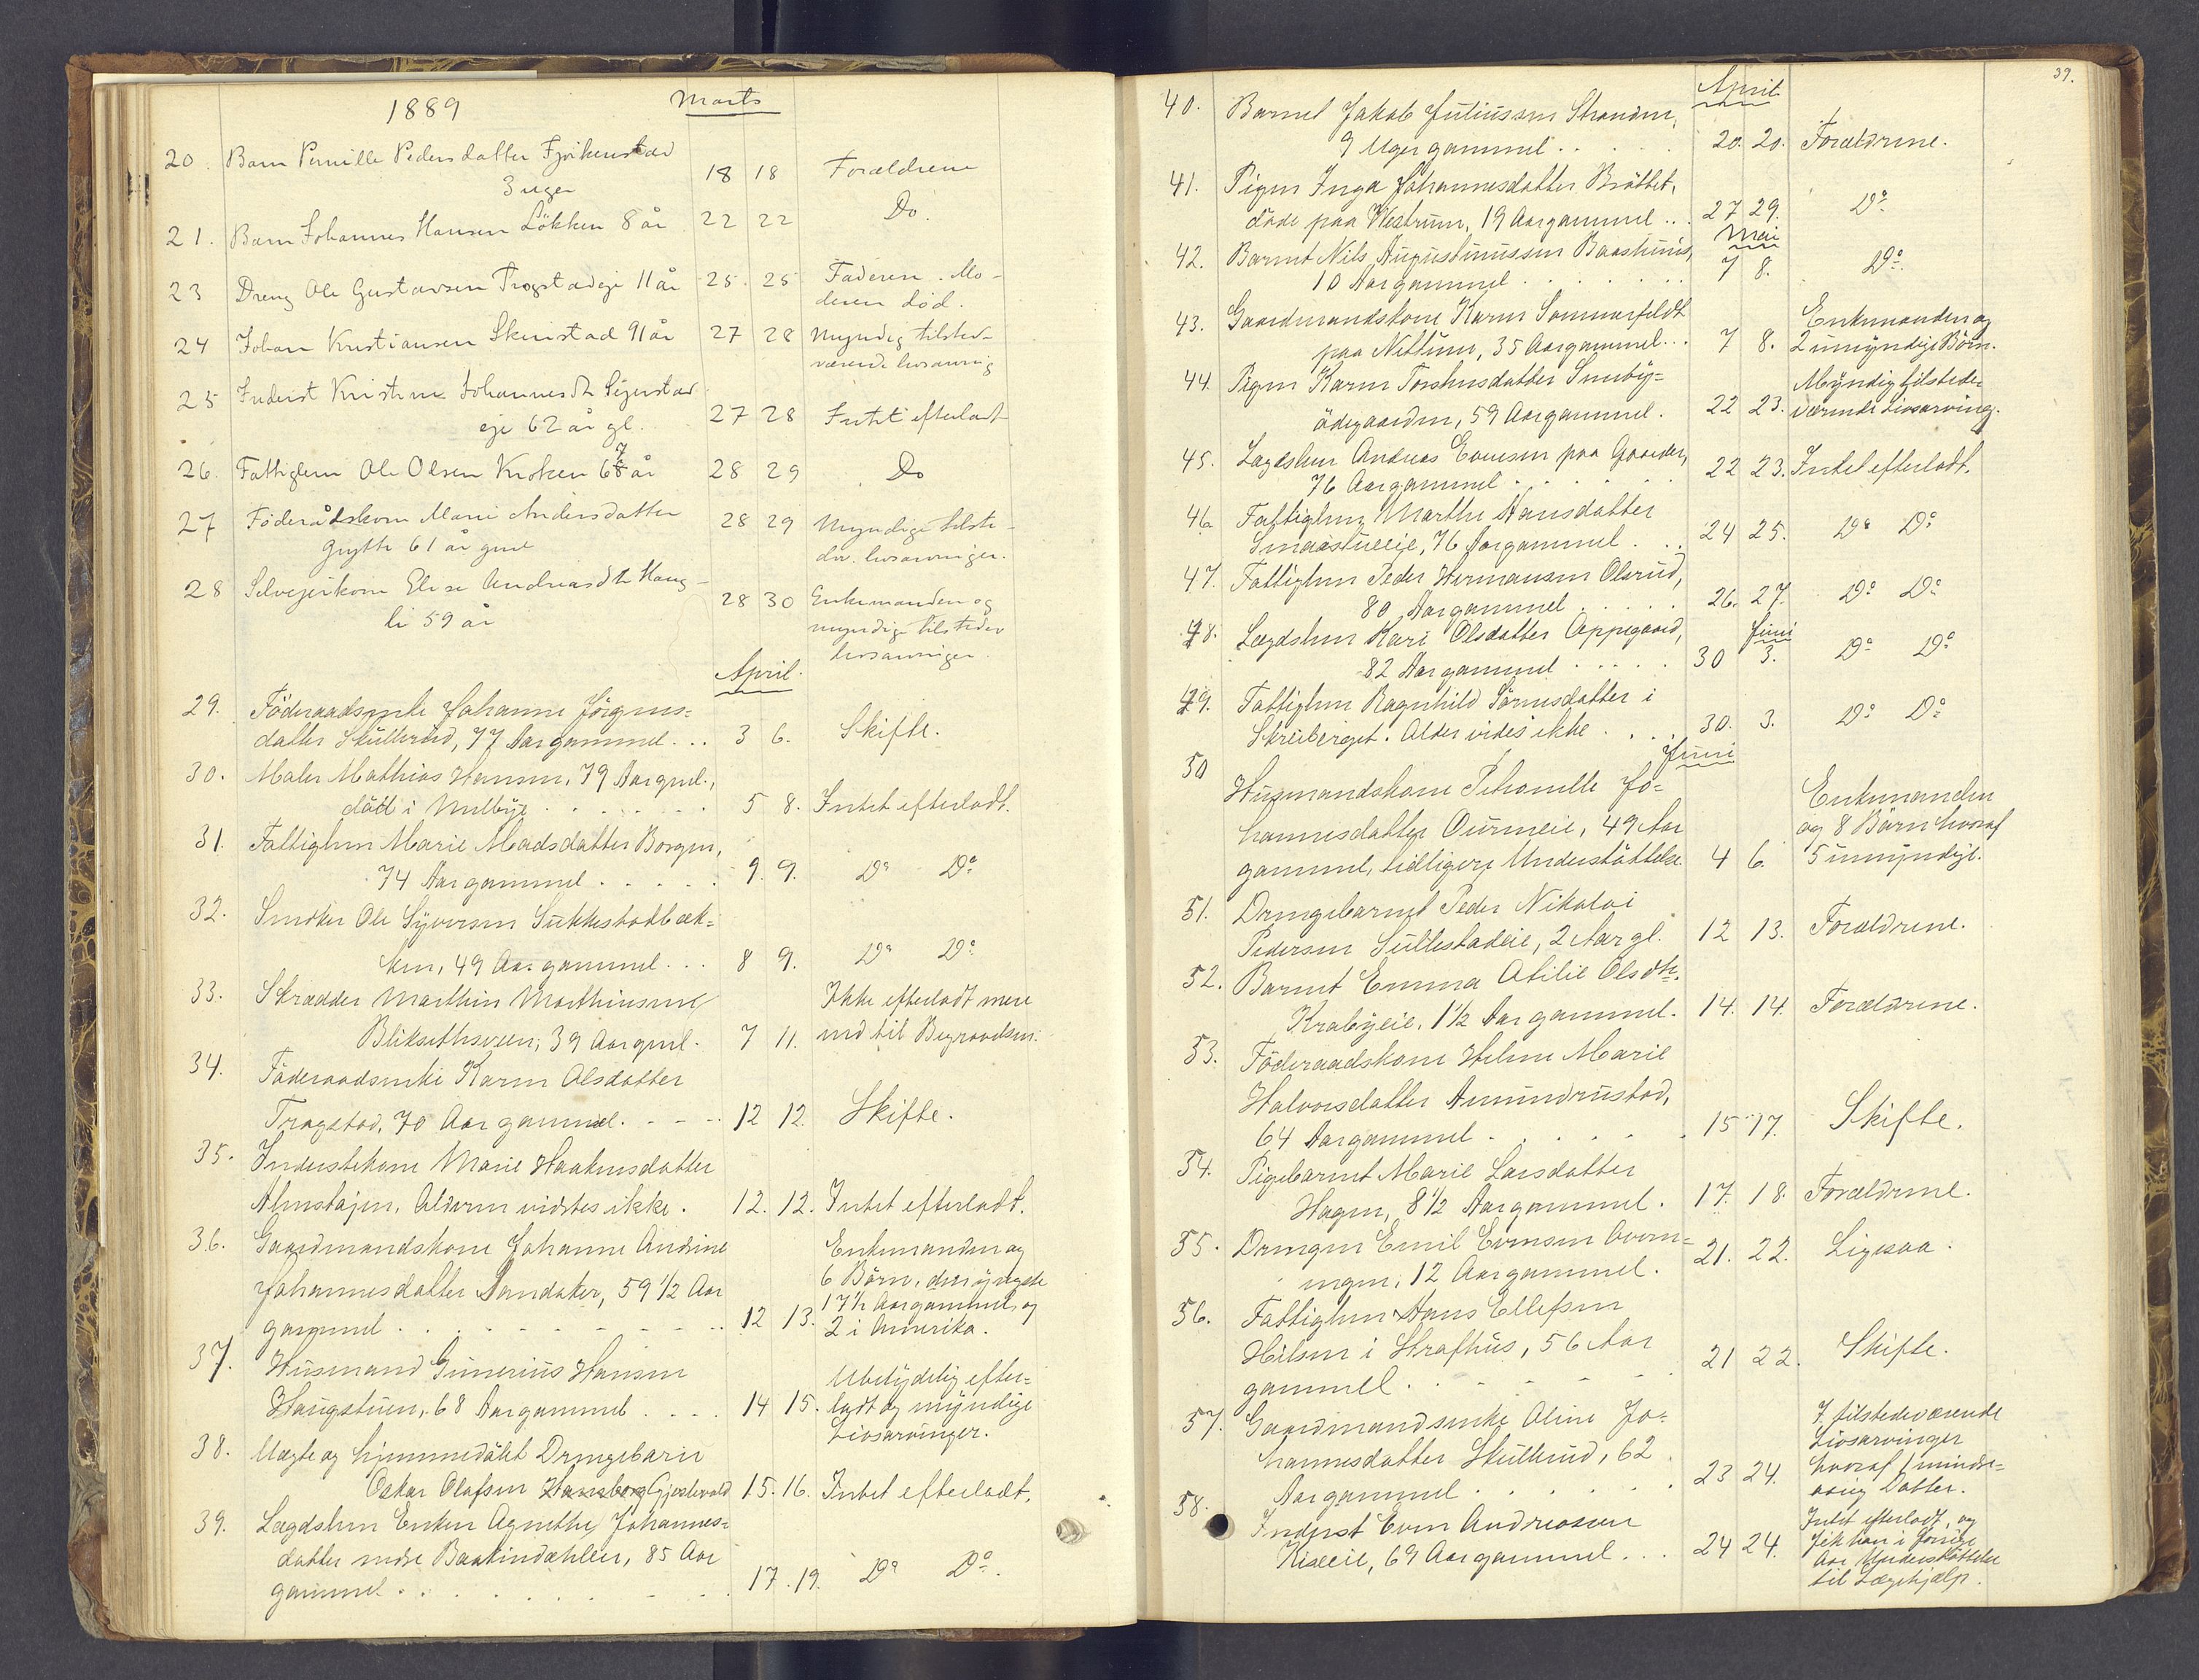 1889 Marts
20. Barn Pernille Pedersdatter Fjeikenstad
3 uger 18 18 Forældrene
21. Barn Johannes Hansen Lökken 8 år 22 22 Do.
23 Dreng Ole Gustavsen Progstadeje 11 år 25. 25 Faderen. Mo-
deren död.
24 Johan Kristiansen Skeistad 91 år 27 28 Myndig tilsted-
værende livsarving
25 Inderst Kristine Johannesdt Sijerstad
eje 62 år gl. 27 28 Intet efterladt
26. Fattiglem Ole Olsen Kroken 67 år 28 29 Do
27 Föderådskone Marie Andersdatter 28 29 Myndige tilste-
Grytte 61 år gml dev. livsarvinger.
28 Selvejerkone Elise Andreasdt Haug-
li 59 år 28 30 Enkemanden og
myndige tilstedev
livsarvinger.
April.
29. Föderaadsenke Johanne Jörgens=
datter Skullerud, 77 Aar gammel... 3 6. Skifte.
30. Maler Mathias Hansen, 79 Aar gml.,
död i Melbye 5 8. Intet efterladt.
31. Fattiglem Marie Madsdatter Borgen,
74 Aar gammel..... 9. 9. Do Do
32. Snedker Ole Syversen Sukkestadbæk=
ken, 49 Aar gammel... 8 9. Do Do
33. Skrædder Marthin Marthinsen Ikke efterladt mere
Bliksethsveen, 39 Aar gml. 7 11. end til Begravelsen.
34. Föderaadsenke Karen Olsdatter
Trogstad, 70 Aar gammel. - - - 12 12. Skifte.
35. Inderstekone Marie Haakensdatter
Almstajen, Alderen vidstes ikke. 12. 12. Intet efterladt.
36. Gaardmandskone Johanne Andrine Enkemanden og
Johannesdatter Sandaker, 59 1/2 Aar 6 Börn, den yngste
gammel 12 13. 17 1/2 Aar gammel, og
2 i Amerika.
37. Husmand Gunerius Hansen Ubetydelig efter=
Haugstuen, 68 Aar gammel.... 14 15. ladt og myndige
Livsarvinger.
38. Uægte og hjemmedöbt Drengebarn
Oskar Olafsen Hansborg Gjestvold 15. 16. Intet efterladt.
39. Lægdslem Enken Agnethe Johannes=
datter nedre Baakindæhlen, 85 Aar
gammel 17. 19. Do Do.
39.
April
40. Barnet Jakob Juliussen Stranden,
9 Uger gammel..... 20. 20. Forældrene.
41. Pigen Inga Johannesdatter Bråttet,
döde paa Westrum, 19 Aar gammel... 27 29. Do
Mai
42. Barnet Nils Augustinussen Baashuus,
10 Aar gammel...... 7 8. Do.
43. Gaardmandskone Karen Sommerfeldt Enkemanden og
paa Nettum, 35 Aar gammel... 7 8. 2 umyndige Börn.
44. Pigen Karen Torstensdatter Sunby= Myndig tilstede=
ödegaarden, 59 Aar gammel. 22 23. værende Livsarving.
45. Lægdslem Andreas Evensen paa Gaarder,
76 Aar gammel 22 23. Intet efterladt.
46. Fattiglem Marthe Hansdatter
Smaastueeje, 76 Aar gammel... 24 25. Do Do
47. Fattiglem Peder Hermansen Olsrud,
80 Aar gammel..... 26. 27. Do Do
48. Lægdslem Kari Olsdatter Oppegaard, Juni
82 Aar gammel..... 30 3. Do Do
49. Fattiglem Ragnhild Sörensdatter i
Skreiberget. Alder vides ikke.... 30. 3. Do Do
Juni
50 Husmandskone Petronille Jo= Enkemanden
hannesdatter Ourneie, 49 Aar og 8 Börn hvoraf
gammel, tidligere Understöttelse. 4 6. 5 umyndige.
51. Drengebarnet Peder Nikolai
Pedersen Sullestadeie, 2 Aar gl. 12 13. Forældrene.
52. Barnet Emma Otilie Olsdtr.
Krabyeie, 1 1/2 Aar gammel. 14. 14. Forældrene.
53. Föderaadskone Helene Marie
Halvorsdatter Amundrustad,
64 Aar gammel..... 15 17. Skifte.
54. Pigebarnet Marie Larsdatter
Hagen, 8 1/2 Aar gammel. 17. 18. Forældrene.
55. Drengen Emil Evensen Avem=
ingen, 12 Aar gammel. 21. 22. Ligesaa.
56. Fattiglem Hans Ellefsen
Hilsen i Strafhus, 56 Aar
gammel. 21 22. Skifte.
57. Gaardmandsenke Oline Jo= 7 tilstedeværende
hannesdatter Skullerud, 62 Livsarvinger
Aar gammel 23 24. hvoraf 1 mindre=
aarig Datter.
58. Inderst Even Andreassen Intet efterladt, og
Kiseeie, 69 Aar gammel... 24 24. fik han i forrige
Aar Understöttelse
til Lægehjælp.